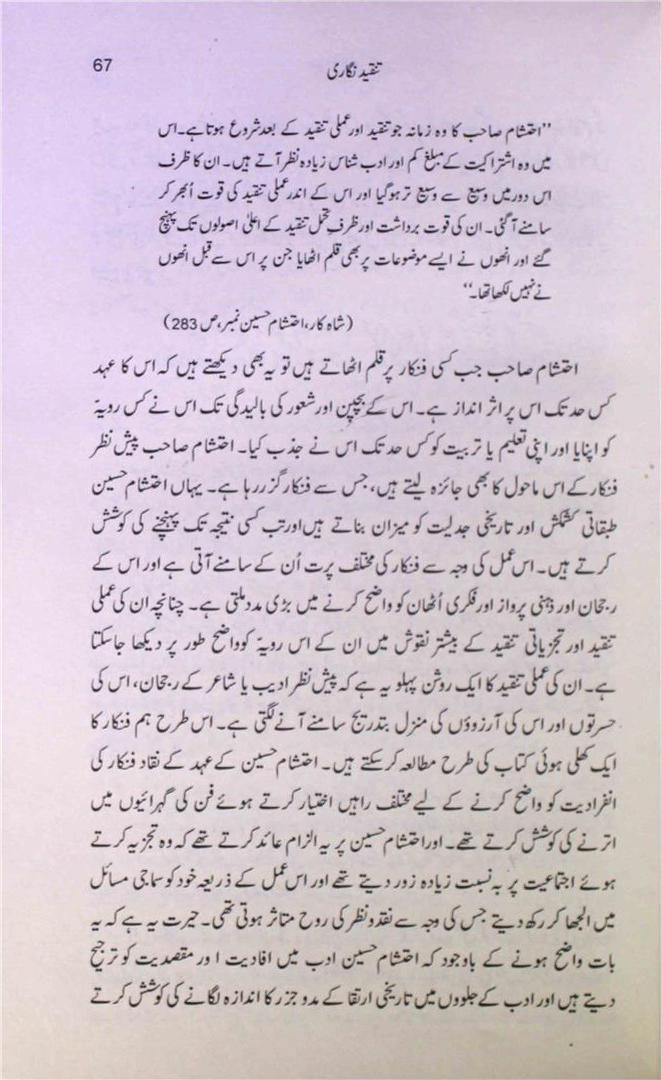 تنقید نگاری
67
"احتشام صاحب کا وہ زمانہ جو تنقید اور عملی تنقید کے بعد شروع ہوتا ہے۔ اس
میں وہ اشتراکیت کے مبلغ کم اور ادب شناس زیادہ نظر آتے ہیں۔ ان کا ظرف
اس دور میں وسیع سے وسیع تر ہو گیا اور اس کے اندر عملی تنقید کی قوت اُبھر کر
سامنے آ گئی۔ ان کی قوت برداشت اور ظرفِ تحمل تنقید کے اعلیٰ اصولوں تک پہنچ
گئے اور انھوں نے ایسے موضوعات پر بھی قلم اٹھایا جن پر اس سے قبل انھوں
نے نہیں لکھا تھا۔"
(شاہ کار، احتشام حسین نمبر، ص 283)
احتشام صاحب جب کسی فنکار پر قلم اٹھاتے ہیں تو یہ بھی دیکھتے ہیں کہ اس کا عہد
کس حد تک اس پر اثر انداز ہے۔ اس کے بچپن اور شعور کی بالیدگی تک اس نے کس رویہّ
کو اپنایا اور اپنی تعلیم یا تربیت کو کس حد تک اس نے جذب کیا۔ احتشام صاحب پیش نظر
فنکار کے اس ماحول کا بھی جائزہ لیتے ہیں، جس سے فنکار گزر رہا ہے۔ یہاں احتشام حسین
طبقاتی کشمکش اور تاریخی جدلیت کو میزان بناتے ہیں اور تب کسی نتیجہ تک پہنچنے کی کوشش
کرتے ہیں۔ اس عمل کی وجہ سے فنکار کی مختلف پرت اُن کے سامنے آتی ہے اور اس کے
رجحان اور ذہنی پرواز اور فکری اُٹھان کو واضح کرنے میں بڑی مدد ملتی ہے۔ چنانچہ ان کی عملی
تنقید اور تجزیاتی تنقید کے بیشتر نقوش میں ان کے اس رویہّ کو واضح طور پر دیکھا جا سکتا
ہے۔ ان کی عملی تنقید کا ایک روشن پہلو یہ ہے کہ پیش نظر ادیب یا شاعر کے رجحان، اس کی
حسرتوں اور اس کی آرزوؤں کی منزل بتدریج سامنے آنے لگتی ہے۔ اس طرح ہم فنکار کا
ایک کھلی ہوئی کتاب کی طرح مطالعہ کر سکتے ہیں۔ احتشام حسین کے عہد کے نقاد فنکار کی
انفرادیت کو واضح کرنے کے لیے مختلف راہیں اختیار کرتے ہوئے فن کی گہرائیوں میں
اترنے کی کوشش کرتے تھے۔ اور احتشام حسین پر یہ الزام عائد کرتے تھے کہ وہ تجزیہ کرتے
ہوئے اجتماعیت پر بہ نسبت زیادہ زور دیتے تھے اور اس عمل کے ذریعہ خود کو سماجی مسائل
میں الجھا کر رکھ دیتے جس کی وجہ سے نقد و نظر کی روح متاثر ہوتی تھی۔ حیرت یہ ہے کہ یہ
بات واضح ہونے کے باوجود کہ احتشام حسین ادب میں افادیت ا ور مقصدیت کو ترجیح
دیتے ہیں اور ادب کے جلووں میں تاریخی ارتقا کے مدو جزر کا اندازہ لگانے کی کوشش کرتے